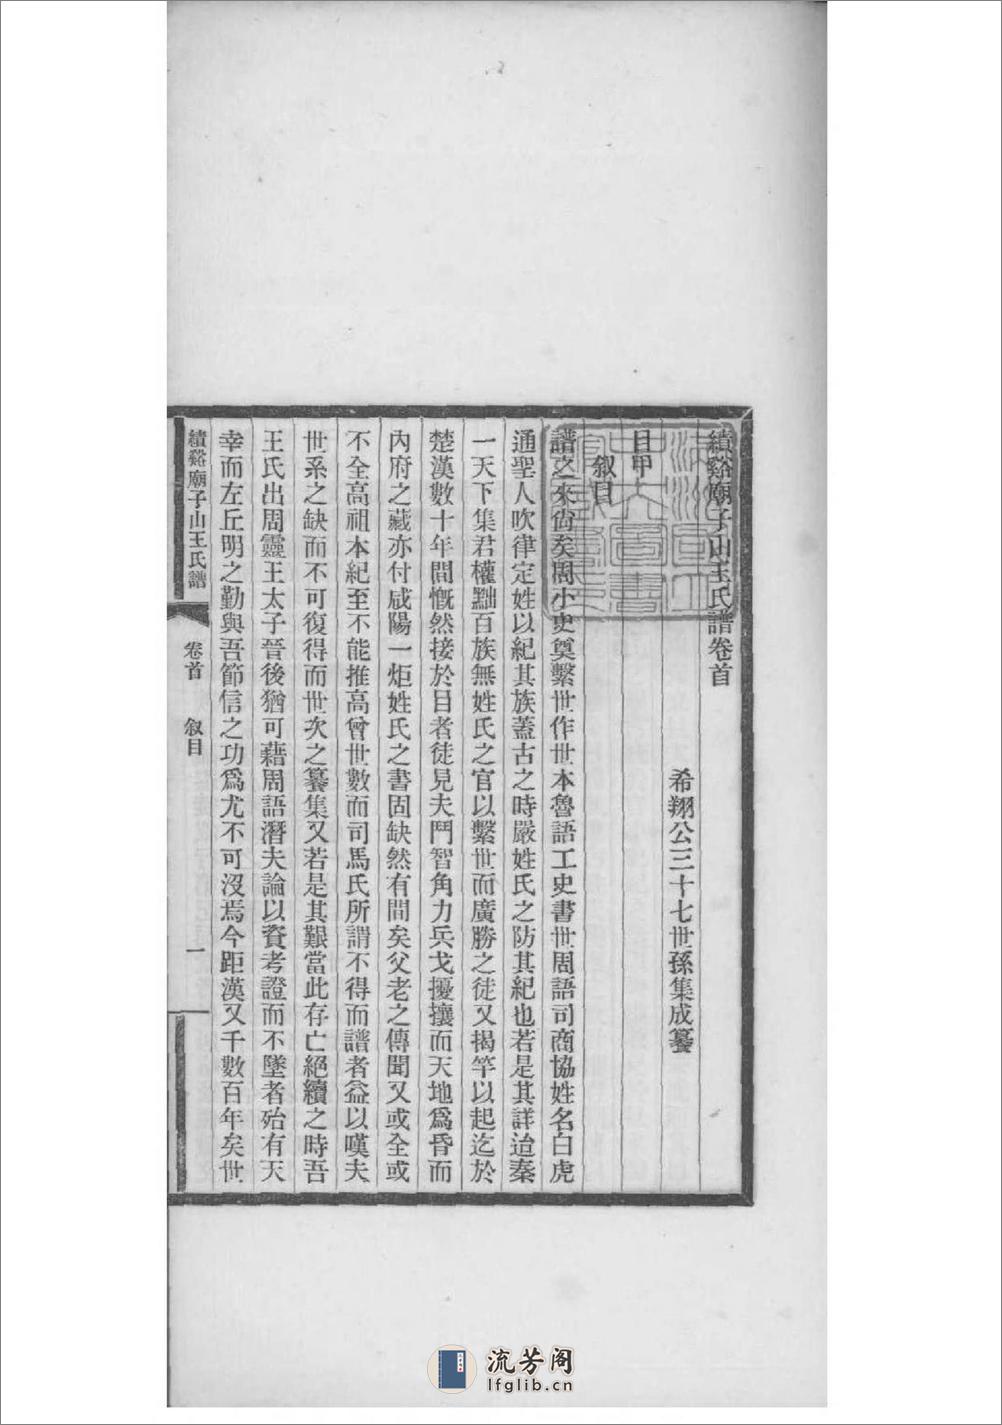 績谿廟子山王氏譜卷首
希翔公三十七世孫集成纂
目甲
叙目
譜之來尙矣周小史奠繫世作世本魯語工史書世周語司商協姓名白虎
通聖人吹律定姓以紀其族蓋古之時嚴姓氏之防其紀也若是其詳迨秦
一天下集君權黜百族無姓氏之官以繫世而廣勝之徒又揭竿以起迄於
楚漢數十年間慨然接於目者徒見夫鬥智角力兵戈擾攘而天地爲昏而
內府之藏亦付咸陽一炬姓氏之書固缺然有間矣父老之傳聞又或全或
不全高祖本紀至不能推高曾世數而司馬氏所謂不得而譜者益以嘆夫
世系之缺而不可復得而世次之纂集又若是其艱當此存亡絕續之時吾
王氏出周靈王太子晉後猶可藉周語潛夫論以資考證而不墜者殆有天
幸而左丘明之勤與吾節信之功爲尤不可沒焉今距漢又千數百年矣世
績谿廟子山王氏譜
卷首
叙目
一
流芳阁
lfglib.cn